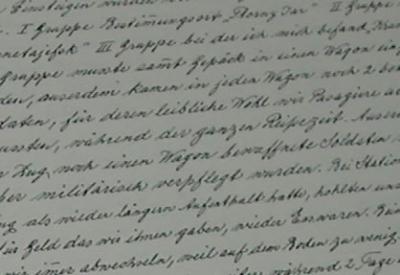 Einsteigen wurden
I Gruppe Bestim̄ungsort „Čorny Jar" II Gruppe
III Gruppe bei der ich mich befand,
Gruppe musste sam̄t Gepäck in einen Wagon
den, auserdem kamen in jeden Wagon noch 2 be
daten, für deren leibliche Wohl wir Pasagiere
ussten, während der ganzen Reisezeit. Auser
Zug noch einen Wagon bewaffnete Soldaten
ber militärisch verpflegt wurden. Bei Station
ug als wieder längern Aufenthalt hatte, hohlten uns
für Geld das wir ihnen gaben, wieder Esswaren.
wir im̄er abwechseln, weil auf dem Boden zu wenig
während 2 Tage